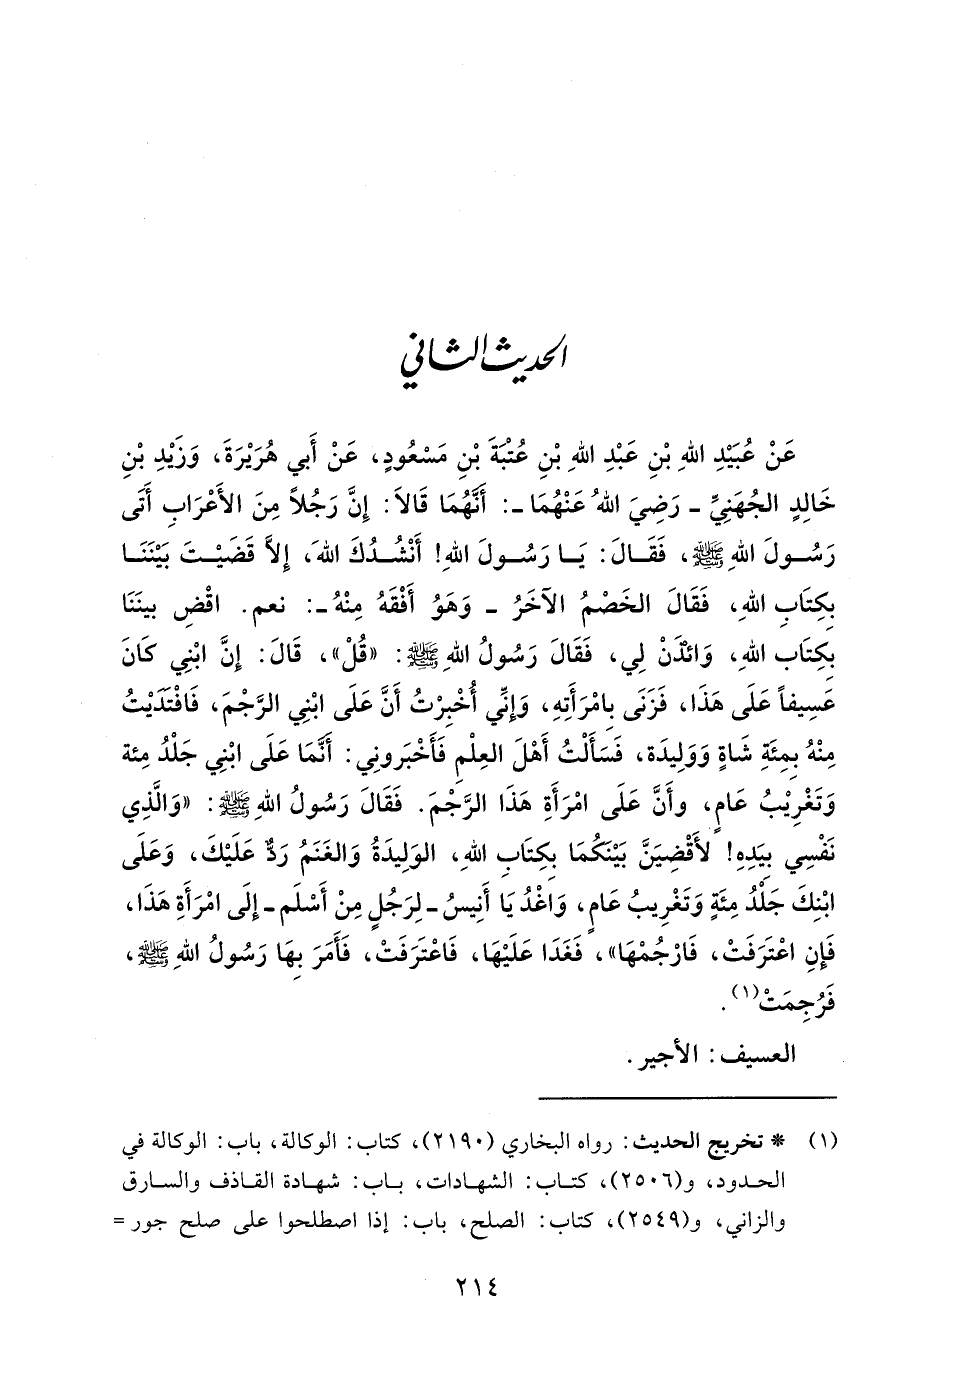 الحديث الثاني
عَنْ عُبَيْدِ اللهِ بْنِ عَبْدِ اللهِ بْنِ عُتْبَةَ بْنِ مَسْعُودٍ، عَنْ أَبي هُرَيْرَةَ، وَزَيْدِ بْنِ
خَالِدٍ الجُهَنِيِّ ـ رَضِيَ اللهُ عَنْهُمَا ـ: أَنَّهُمَا قَالاَ: إِنَّ رَجُلاً مِنَ الأَعْرَابِ أَتَى
رَسُولَ اللهِ ﷺ، فَقَالَ: يَا رَسُولَ اللهِ! أَنْشُدُكَ اللهَ، إِلاَّ قَضَيْتَ بَيْنَنَا
بِكِتَابِ اللهِ، فَقَالَ الخَصْمُ الآخَرُ ـ وَهُوَ أَفْقَهُ مِنْهُ ـ: نعم. اقْضِ بينَنَا
بِكِتَابِ اللهِ، وَائْذَنْ لِي، فَقَالَ رَسُولُ اللهِ ﷺ: «قُلْ»، قَالَ: إِنَّ ابْنِي كَانَ
عَسِيفاً عَلَى هَذَا، فَزَنَى بِامْرَأَتِهِ، وَإِنِّي أُخْبِرْتُ أَنَّ عَلَى ابْنِي الرَّجْمَ، فَافْتَدَيْتُ
مِنْهُ بِمِئَةِ شَاةٍ وَوَلِيدَة، فَسَأَلْتُ أَهْلَ العِلْمِ فَأَخْبَرونِي: أَنَّمَا عَلَى ابْنِي جَلْدُ مِئة
وَتَغْرِيْبُ عَامٍ، وأَنَّ عَلَى امْرَأَةِ هَذَا الرَّجْمَ. فَقَالَ رَسُولُ اللهِ ﷺ: «وَالَّذِي
نَفْسِي بِيَدِهِ! لأَقْضِيَنَّ بَيْنَكُمَا بِكِتَابِ اللهِ، الوَلِيدَةُ وَالغَنَمُ رَدٌّ عَلَيْكَ، وَعَلَى
ابْنِكَ جَلْدُ مِئَةٍ وَتَغْرِيبُ عَامٍ، وَاغْدُ يَا أُنَيسُ ـ لِرَجُلٍ مِنْ أَسْلَم ـ إِلَى امْرَأَةِ هَذَا،
فَإِنِ اعْتَرَفَتْ، فَارْجُمْهَا»، فَغَدَا عَلَيْهَا، فَاعْتَرَفَتْ، فَأَمَرَ بِهَا رَسُولُ اللهِ ﷺ،
فَرُجِمَتْ(١).
العسيف: الأجير.
(١) * تخريج الحديث: رواه البخاري (٢١٩٠)، كتاب: الوكالة، باب: الوكالة في
الحدود، و(٢٥٠٦)، كتاب: الشهادات، باب: شهادة القاذف والسارق
والزاني، و(٢٥٤٩)، كتاب: الصلح، باب: إذا اصطلحوا على صلح جور =
٢١٤